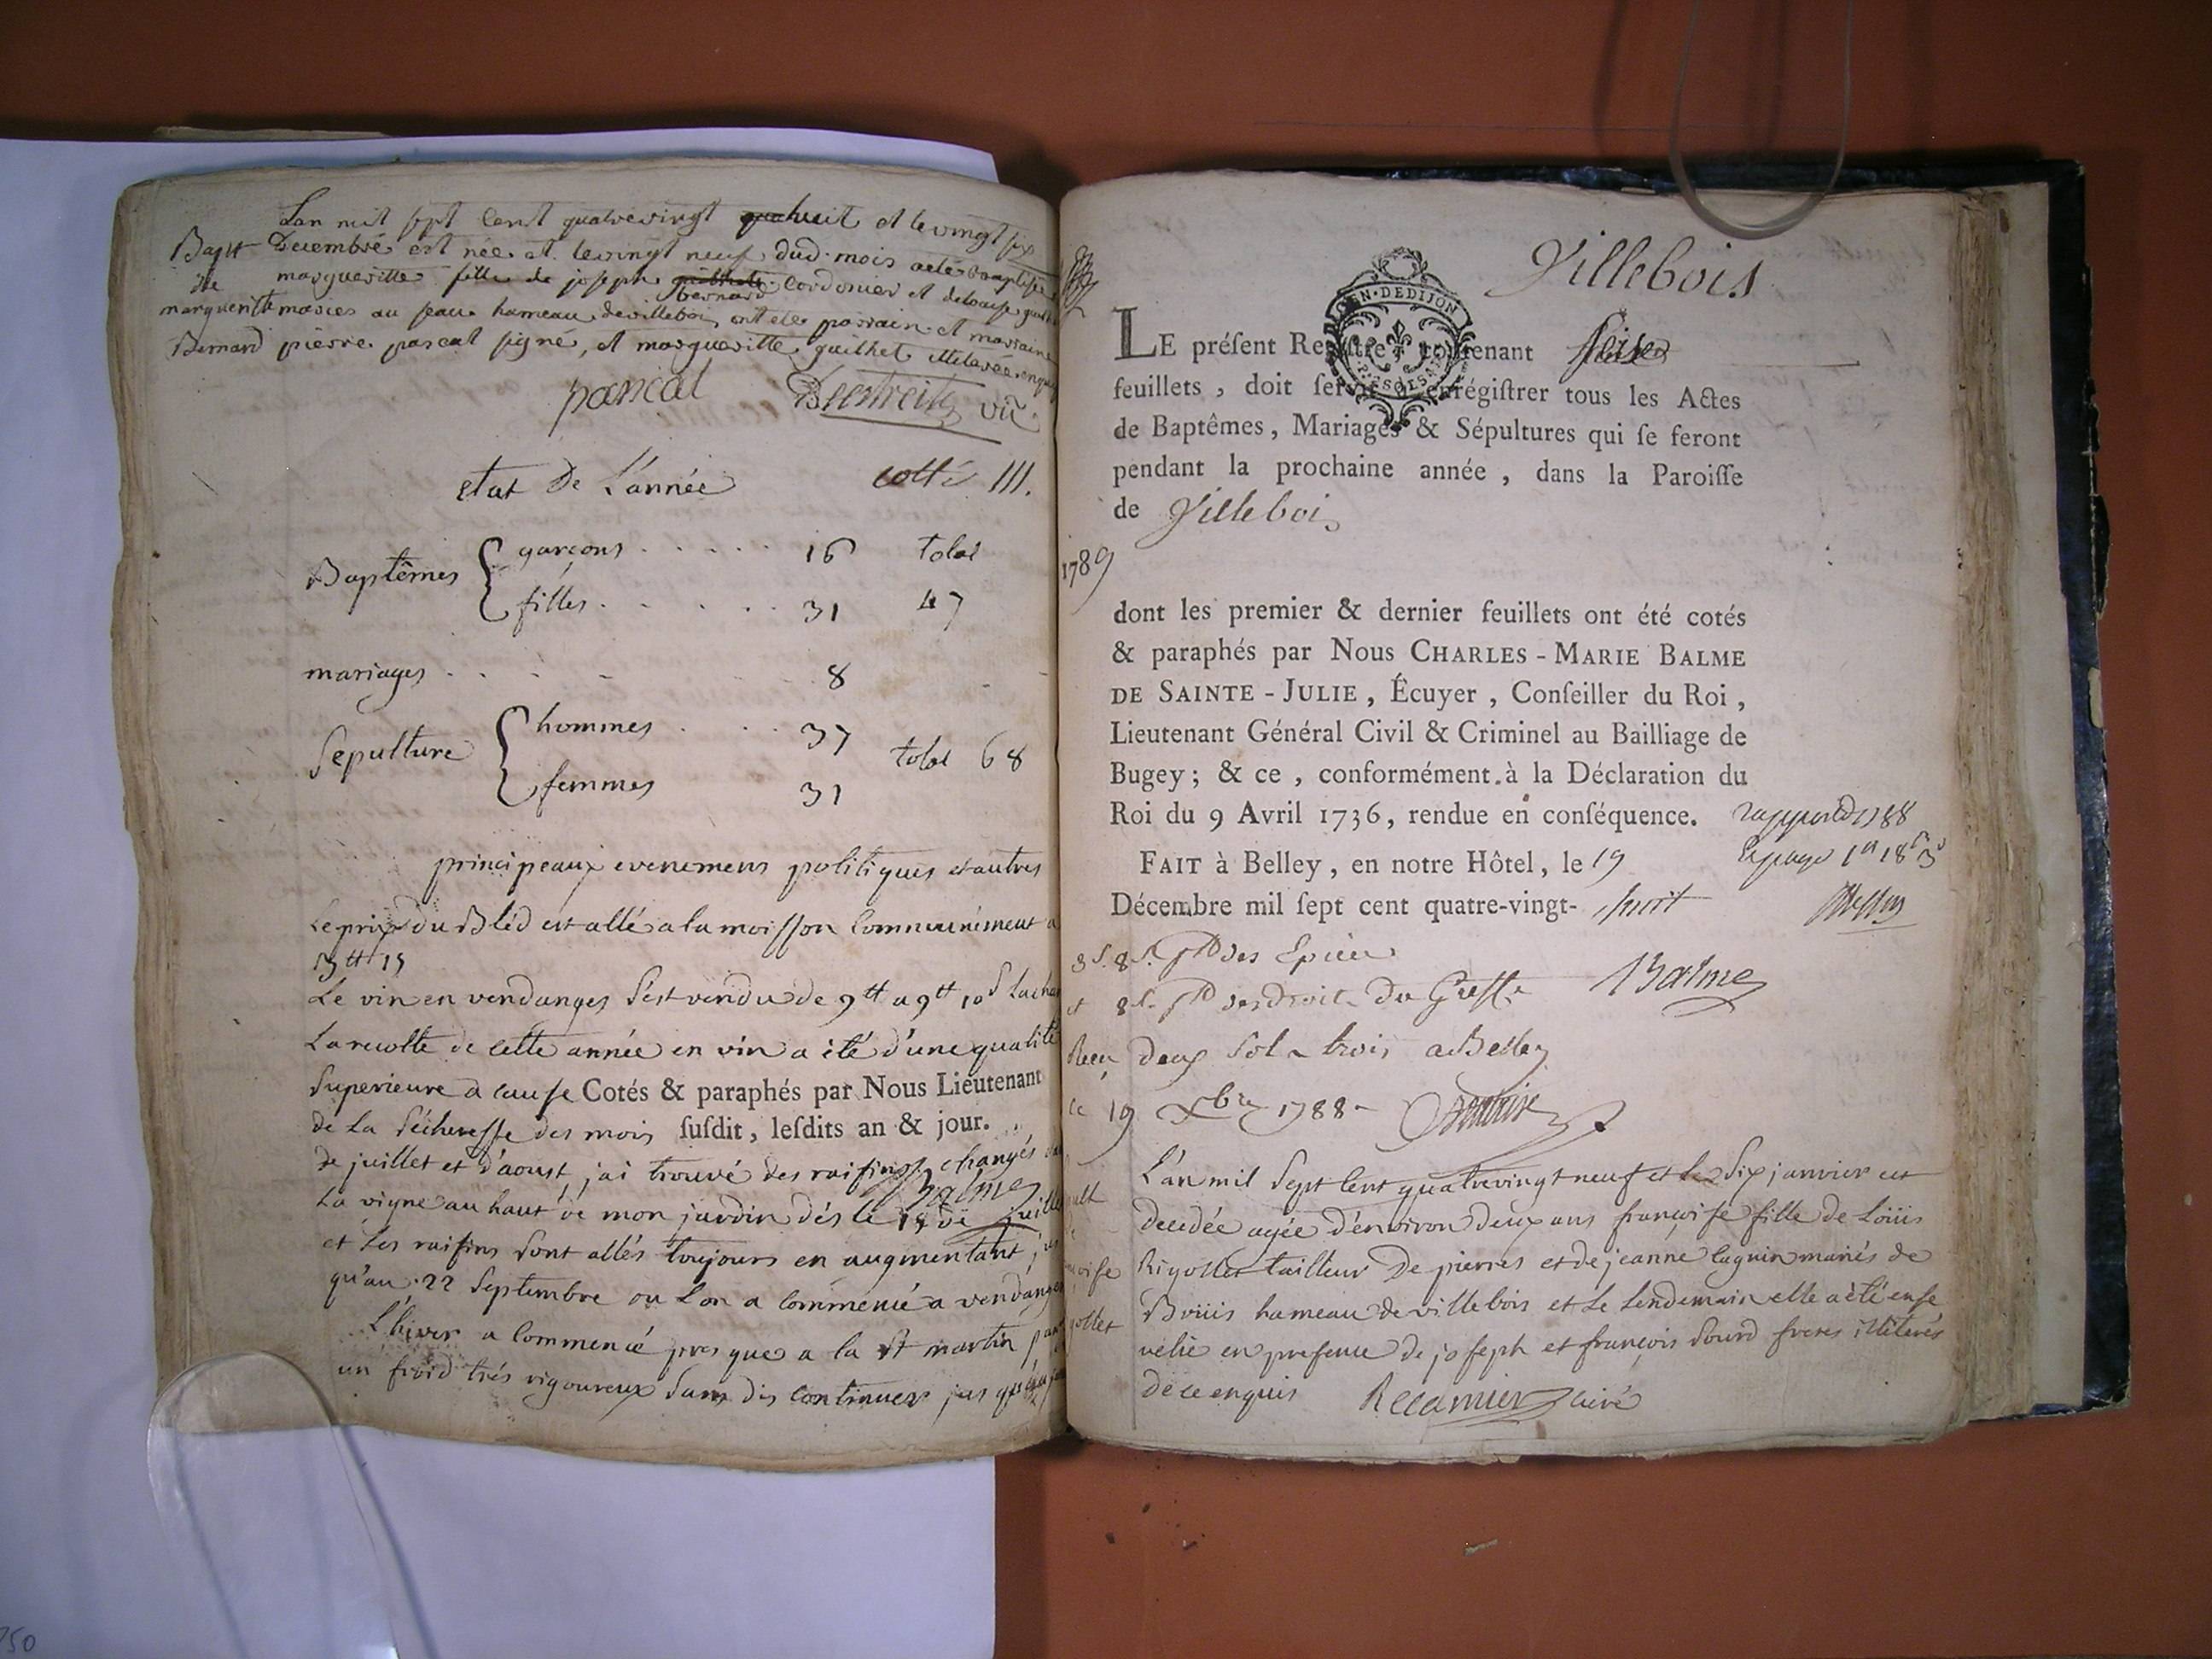 Lan mil sept Cent quatrevingt huit et le vingt six
Bapt Decembre est née et le vingt neuf dud. mois a eté baptisée
de margueritte fille de joseph bernard Cordonier et de
margueritte mariés au hameau de villebois ont eté parrain et marraine
Bernard pierre pascal signé, et margueritte guilhet illiterée enquise
pascal Destreits vic.
etat De L'année cotté III.
Baptêmes garçons 16 total
filles 31 47
mariages 8
Sepulture hommes 37 total 68
femmes 31
principeaux evenemens politiques et autres
Le prix du Bléd est allé a la moisson Communément a
Le vin en vendanges s'est vendu de 9tt a 9tt 10s
La recolte de cette année en vin a été d'une qualité
superieure a cause Cotés & paraphés par Nous Lieutenant
de La Sécheresse des mois suſdit, leſdits an & jour.
de juillet et d'aoust, j'ai trouvé des raisins changés
Balme
La vigne au haut de mon jardin dés le 18 de juillet
et Les raisins sont allés toujours en augmentant
qu'au 22 Septembre ou Lon a Commencé a vendanger
L'hiver a Commencé presque a la St martin par
un froid trés vigoureux sans dis continuer
Villebois
CEN. DE DIJON
LE préſent Regiſtre, contenant ſeise
feuillets, doit ſervir à enrégiſtrer tous les Actes
de Baptêmes, Mariages & Sépultures qui ſe feront
pendant la prochaine année, dans la Paroiſſe
de Villebois
1789
dont les premier & dernier feuillets ont été cotés
& paraphés par Nous CHARLES-MARIE BALME
DE SAINTE-JULIE, Écuyer, Conſeiller du Roi,
Lieutenant Général Civil & Criminel au Bailliage de
Bugey; & ce, conformément à la Déclaration du
Roi du 9 Avril 1736, rendue en conſéquence.
FAIT à Belley, en notre Hôtel, le 19
Décembre mil ſept cent quatre-vingt-huit
3s. 8d. pr ses Epices
et 8s. pr ses droits du Greffe Balme
Reçu Deux Sol trois a Belley
ce 19 Xbre 1788
L'an mil Sept Cent quatrevingt neuf et Le Six janvier est
decedée agée d'environ deux ans françoise fille de Loüis
Rigollet tailleur De pierres et de jeanne laguin mariés de
Brüis hameau de villebois et Le Lendemain elle a été ense
velie en presence De joseph et françois Sourd freres illiterés
de ce enquis Recamier curé